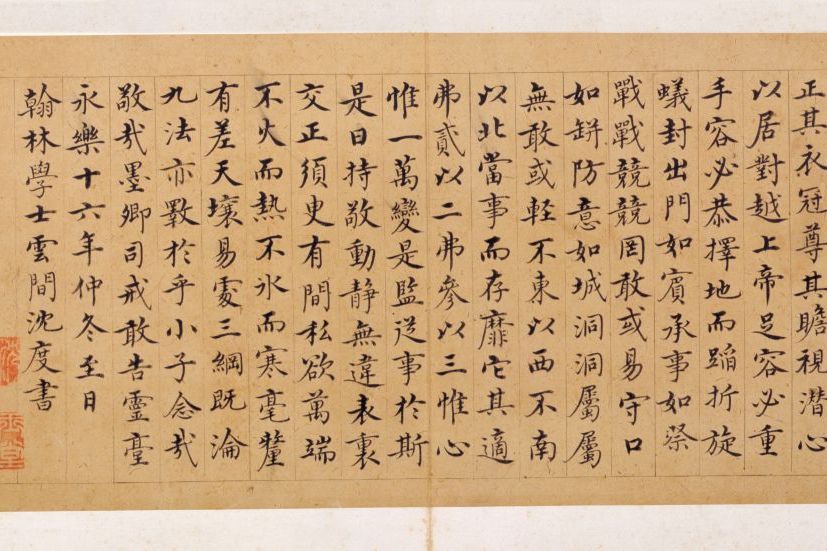 正其衣冠尊其瞻視潛心
以居對越上帝足容必重
手容必恭擇地而蹈折旋
蟻封出門如賓承事如祭
戰戰競競罔敢或易守口
如缾防意如城洞洞屬屬
無敢或輕不東以西不南
以北當事而存靡它其適
弗貳以二弗參以三惟心
惟一萬變是監從事於斯
是曰持敬動靜無違表裏
交正須臾有間私欲萬端
不火而熱不氷而寒毫釐
有差天壤易處三綱既淪
九法亦斁於乎小子念哉
敬哉墨卿司戒敢告靈臺
永樂十六年仲冬至日
翰林學士雲間沈度書